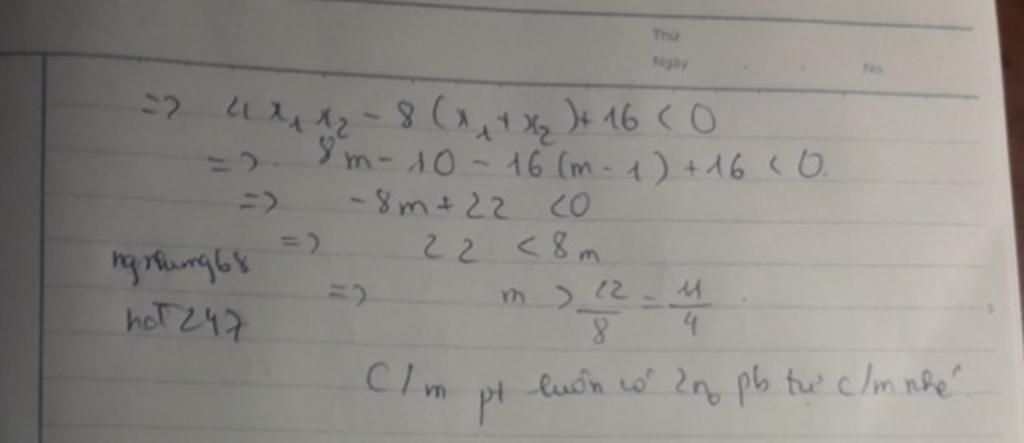 Thứ
Ngày . . No.
=> 4x₁x₂ - 8(x₁+x₂)+16 < 0
=> 8m - 10 - 16(m-1)+16 < 0.
=> -8m + 22 < 0
=> 22 < 8m
ngnhung68
=> m > 22/8 = 11/4.
hot247
C/m pt luôn có 2no pb tự c/m nhé